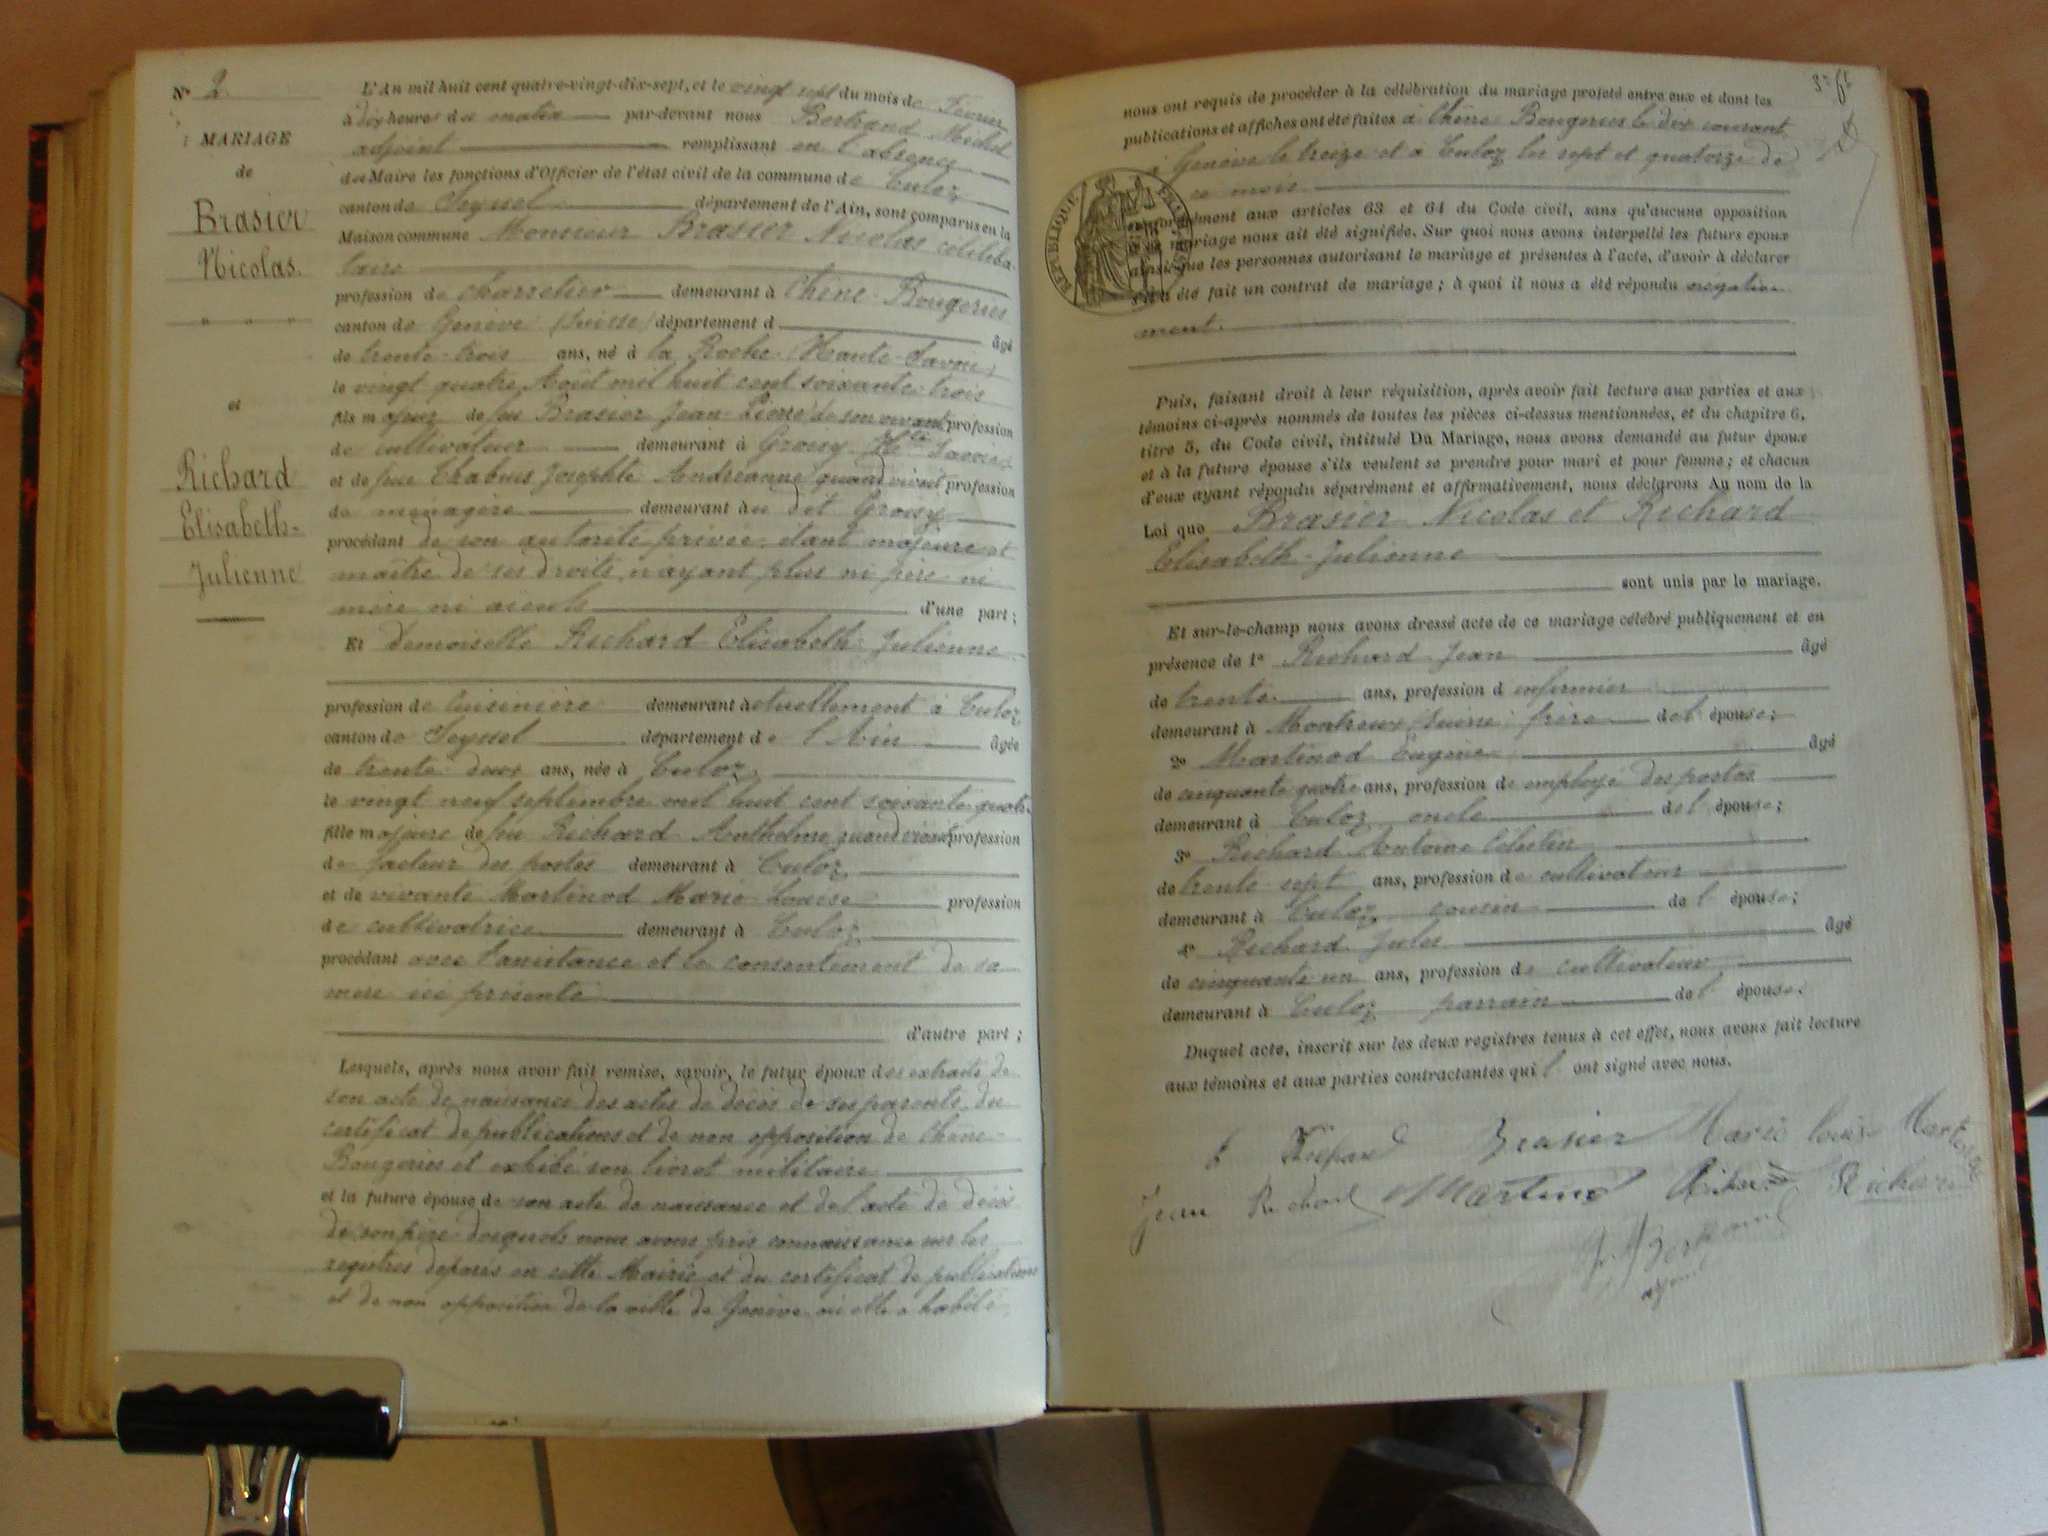 N° 2
MARIAGE
de
Brasier
Nicolas.
et
Richard
Elisabeth-
Julienne
L'An mil huit cent quatre-vingt-dix-sept, et le vingt sept du mois de Février
à dix heures du matin par-devant nous Bertrand Michel
adjoint remplissant en l'absence
du Maire les fonctions d'Officier de l'état civil de la commune de Culoz
canton de Seyssel département de l'Ain, sont comparus en la
Maison commune Monsieur Brasier Nicolas céliba-
taire
profession de charretier demeurant à Chêne-Bougeries
canton de Genève (Suisse) département d âgé
de trente-trois ans, né à la Roche (Haute-Savoie)
le vingt quatre Août mil huit cent soixante-trois
fils majeur de feu Brasier Jean-Pierre de son vivant profession
de cultivateur demeurant à Groisy Hte Savoie
et de feue Chabus Josephte Andréanne quand vivait profession
de ménagère demeurant au dit Groisy
procédant de son autorité privée, étant majeure et
maître de ses droits, n'ayant plus ni père ni
mère ni aïeuls d'une part ;
Et demoiselle Richard Elisabeth-Julienne
profession de cuisinière demeurant actuellement à Culoz
canton de Seyssel département de l'Ain âgée
de trente-deux ans, née à Culoz
le vingt neuf septembre mil huit cent soixante-quatre
fille majeure de feu Richard Anthelme quand vivait profession
de facteur des postes demeurant à Culoz
et de vivante Martinod Marie Louise profession
de cultivatrice demeurant à Culoz
procédant avec l'assistance et le consentement de sa
mère ici présente
d'autre part ;
Lesquels, après nous avoir fait remise, savoir, le futur époux des extraits de
son acte de naissance des actes de décès de ses parents, du
certificat de publications et de non opposition de Chêne-
Bougeries et exhibé son livret militaire
et la future épouse de son acte de naissance et de l'acte de décès
de son père desquels nous avons pris connaissance sur les
registres déposés en cette Mairie et du certificat de publications
et de non opposition de la ville de Genève où elle a habité,
nous ont requis de procéder à la célébration du mariage projeté entre eux et dont les
publications et affiches ont été faites à Chêne Bougeries le dix courant
à Genève le treize et à Culoz les sept et quatorze de
ce mois
RÉPUBLIQUE FRANÇAISE
conformément aux articles 63 et 64 du Code civil, sans qu'aucune opposition
mariage nous ait été signifiée. Sur quoi nous avons interpellé les futurs époux
ainsi que les personnes autorisant le mariage et présentes à l'acte, d'avoir à déclarer
s'il a été fait un contrat de mariage ; à quoi il nous a été répondu négative-
ment.
Puis, faisant droit à leur réquisition, après avoir fait lecture aux parties et aux
témoins ci-après nommés de toutes les pièces ci-dessus mentionnées, et du chapitre 6,
titre 5, du Code civil, intitulé Du Mariage, nous avons demandé au futur époux
et à la future épouse s'ils veulent se prendre pour mari et pour femme ; et chacun
d'eux ayant répondu séparément et affirmativement, nous déclarons Au nom de la
Loi que Brasier Nicolas et Richard
Elisabeth-Julienne
sont unis par le mariage.
Et sur-le-champ nous avons dressé acte de ce mariage célébré publiquement et en
présence de 1° Richard Jean âgé
de trente ans, profession d infirmier
demeurant à Montreux (Suisse) frère de l'épouse ;
2° Martinod Eugène âgé
de cinquante quatre ans, profession de employé des postes
demeurant à Culoz oncle de l'épouse ;
3° Richard Antoine Célestin
de trente-sept ans, profession de cultivateur
demeurant à Culoz cousin de l'épouse ;
4° Richard Jules âgé
de cinquante un ans, profession de cultivateur
demeurant à Culoz parrain de l'épouse.
Duquel acte, inscrit sur les deux registres tenus à cet effet, nous avons fait lecture
aux témoins et aux parties contractantes qui l'ont signé avec nous.
Brasier Marie louise Martinod
Jean Richard Martinod Richard Richard
Bertrand